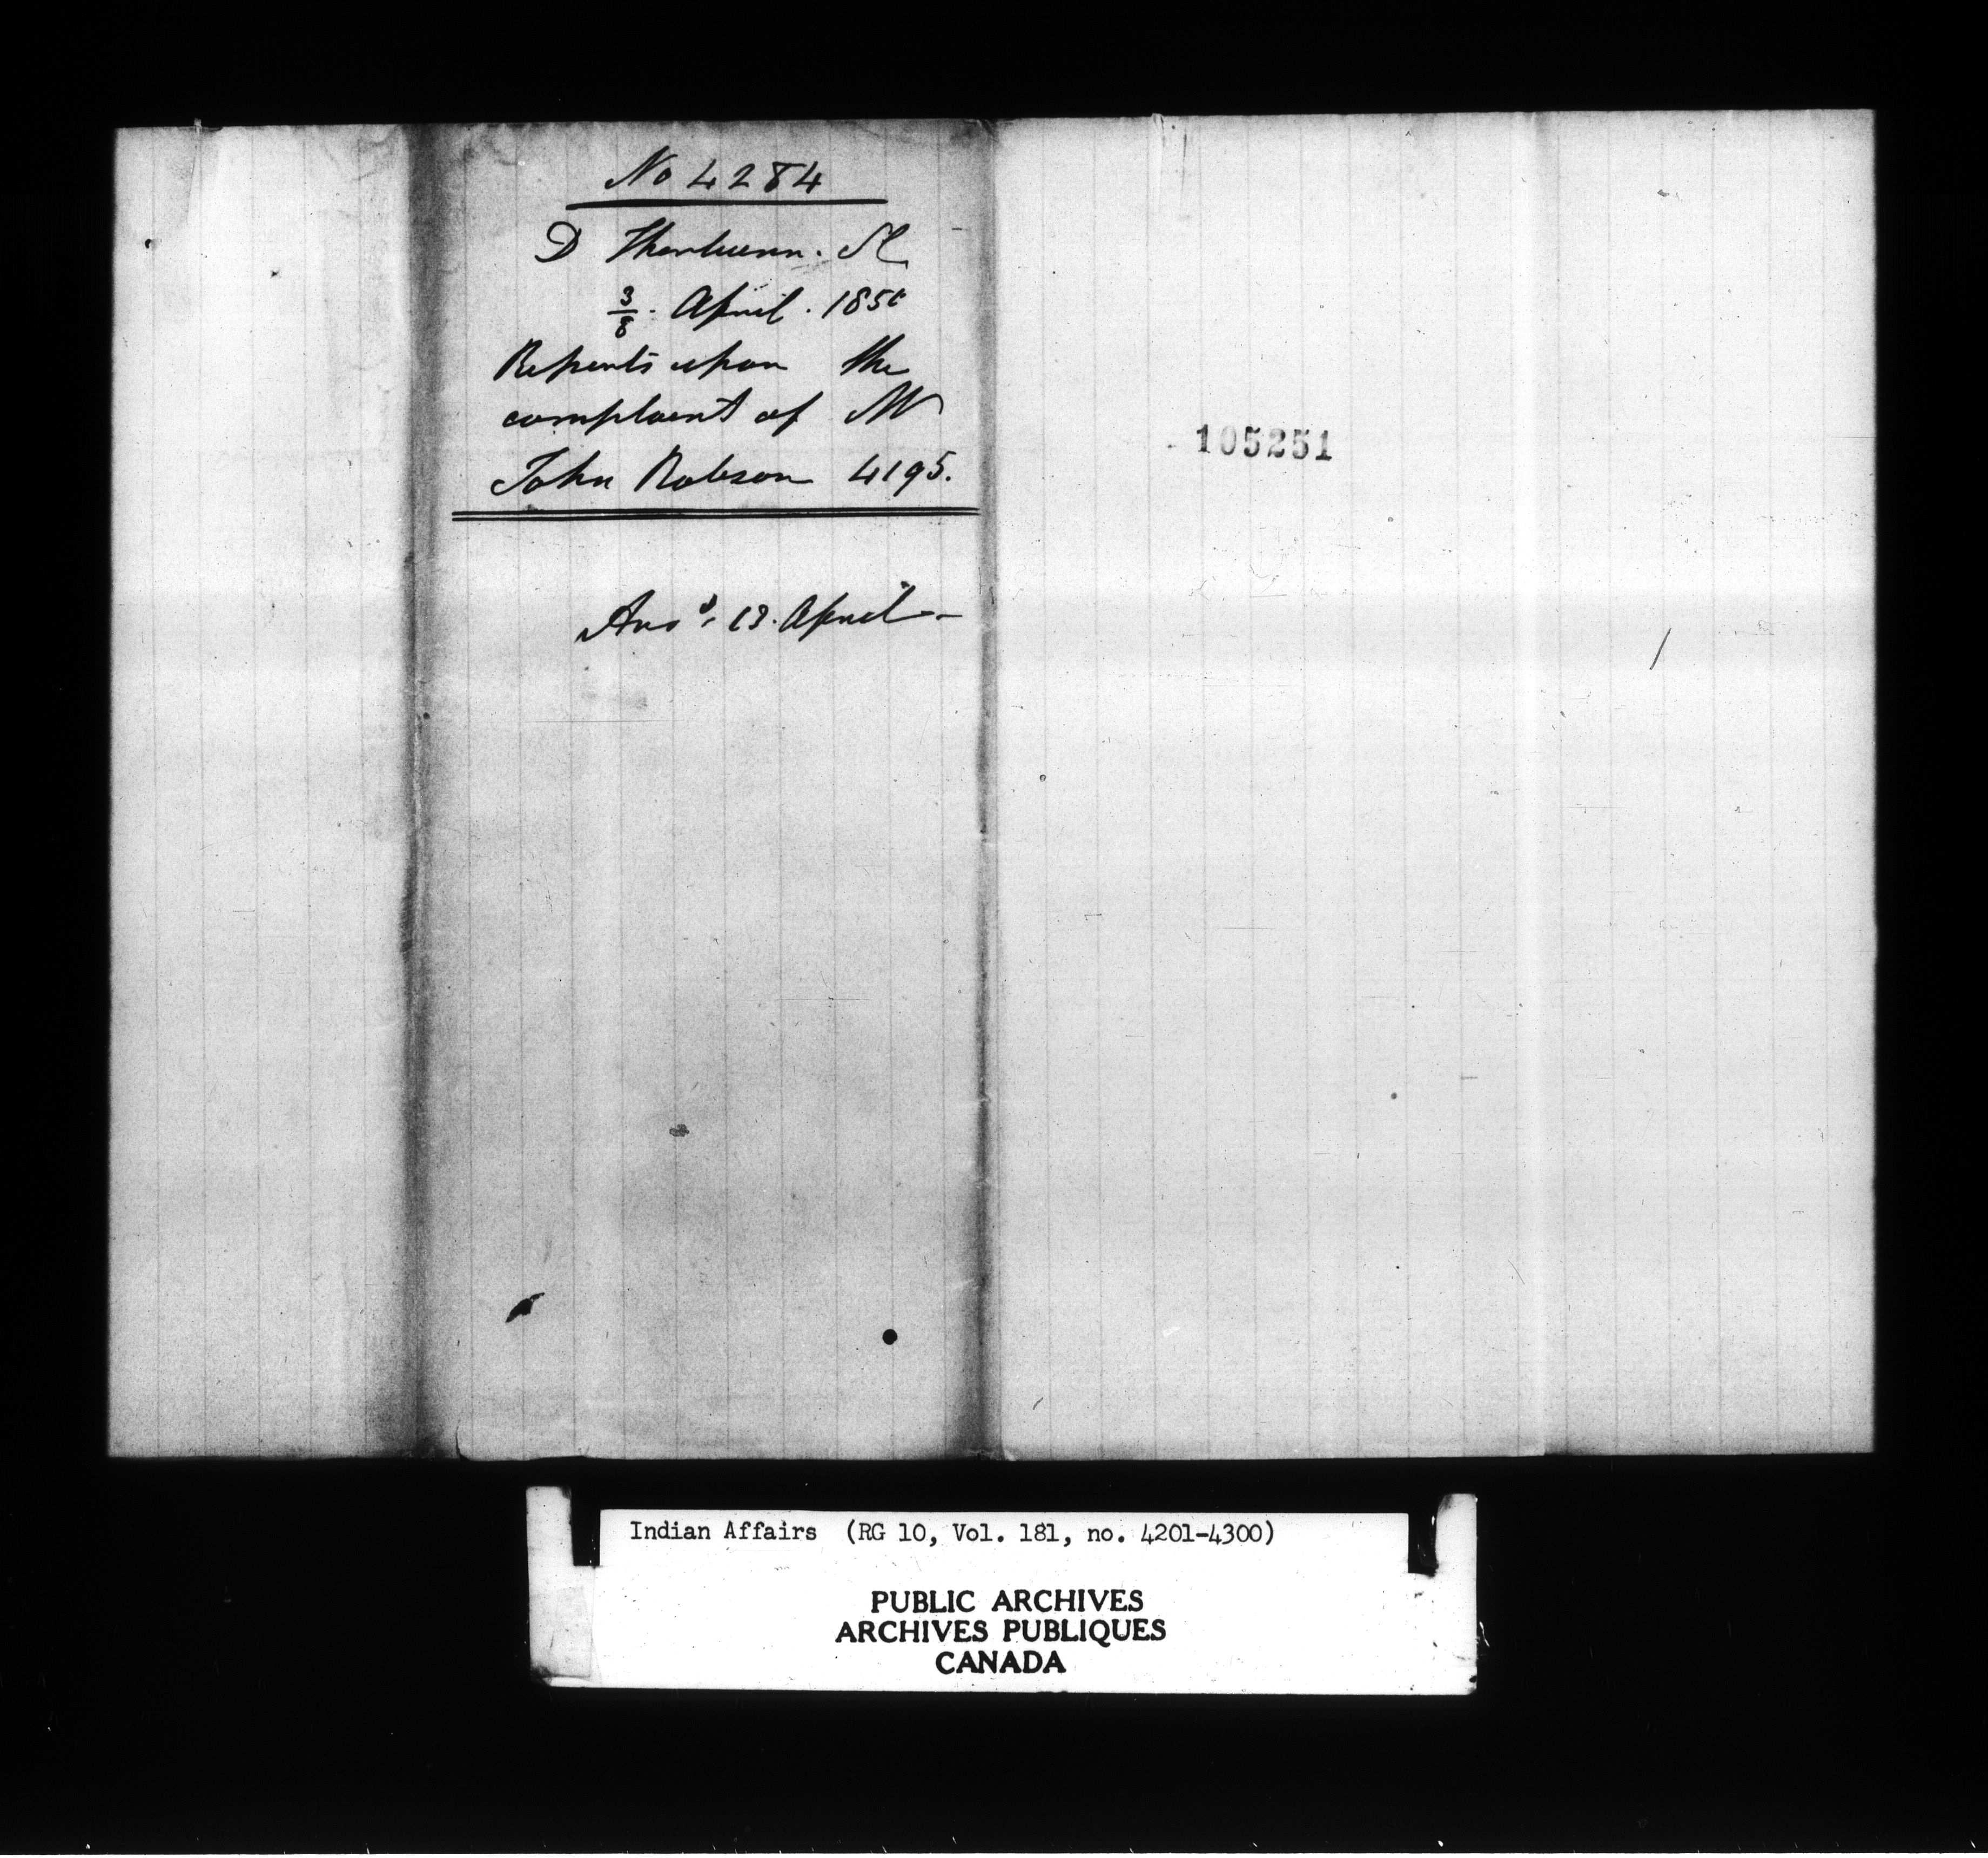 No 4284
D Thorburn. Sl
3/8. April. 1850
Reports upon the
complaint of Mr
John Robson 4195.
Ansd, 13. April -
105251
Indian Affairs (RG 10, Vol. 181, no. 4201-4300)
PUBLIC ARCHIVES
ARCHIVES PUBLIQUES
CANADA